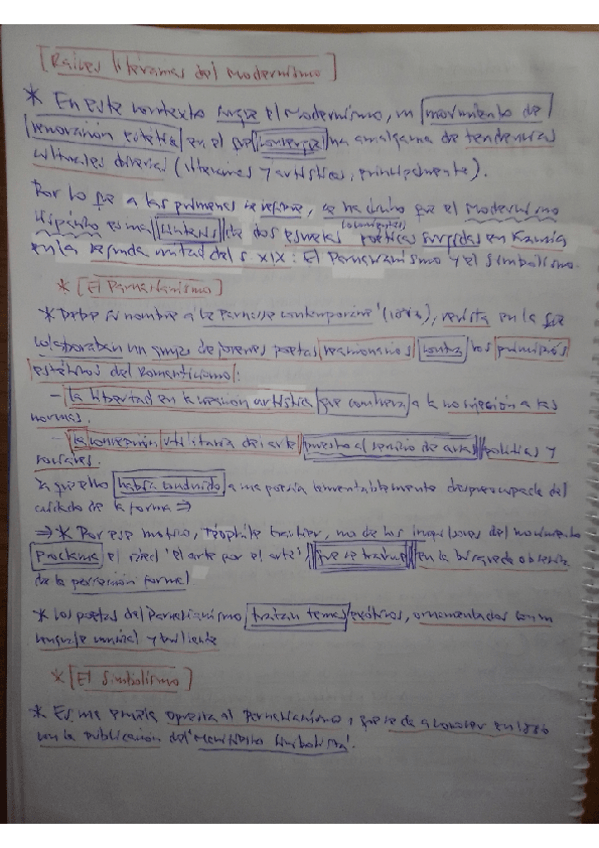 [Raíces literarias del modernismo]
* En este contexto surge el Modernismo, un movimiento de
renovación estética en el que converge una amalgama de tendencias
culturales diversas (literarias y artísticas, principalmente).
Por lo que a las primeras se refiere, se ha dicho que el modernismo
Hispánico es una síntesis de dos escuelas poéticas surgidas en Francia
en la segunda mitad del s. XIX: El Parnasianismo y el simbolismo.
* [El Parnasianismo]
* Debe su nombre a Le Parnasse contemporaine (), revista en la que
colaboraban un grupo de jóvenes poetas reaccionarios contra los principios
estéticos del Romanticismo:
- La libertad en la creación artística que conlleva a la no sujeción a las
normas.
- La concepción utilitaria del arte puesto al servicio de ideas políticas y
sociales.
Ya que ello había conducido a una poesía lamentablemente despreocupada del
cuidado de la forma ⇒
⇒ * Por ese motivo, Téophile Gautier, uno de los impulsores del movimiento
proclama el ideal 'el arte por el arte' que se traduce en la búsqueda obsesiva
de la perfección formal
* Los poetas del Parnasianismo tratan temas exóticos, ornamentados con un
lenguaje musical y brillante
* [El Simbolismo]
* Es una escuela opuesta al Parnasianismo, que se da a conocer en 1886
con la publicación del 'Manifiesto Simbolista'.